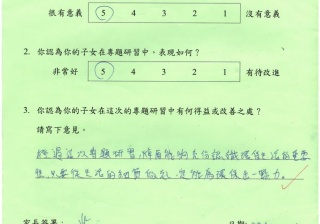 很有意義 5 4 3 2 1 沒有意義
2. 你認為你的子女在專題研習中,表現如何?
非常好 5 4 3 2 1 有待改進
3. 你認為你的子女在這次的專題研習中有何得益或改善之處?
請寫下意見。
經過這次專題研習,
性,只要從生活的細節做起,定能為環保出一點力。
家長簽署: